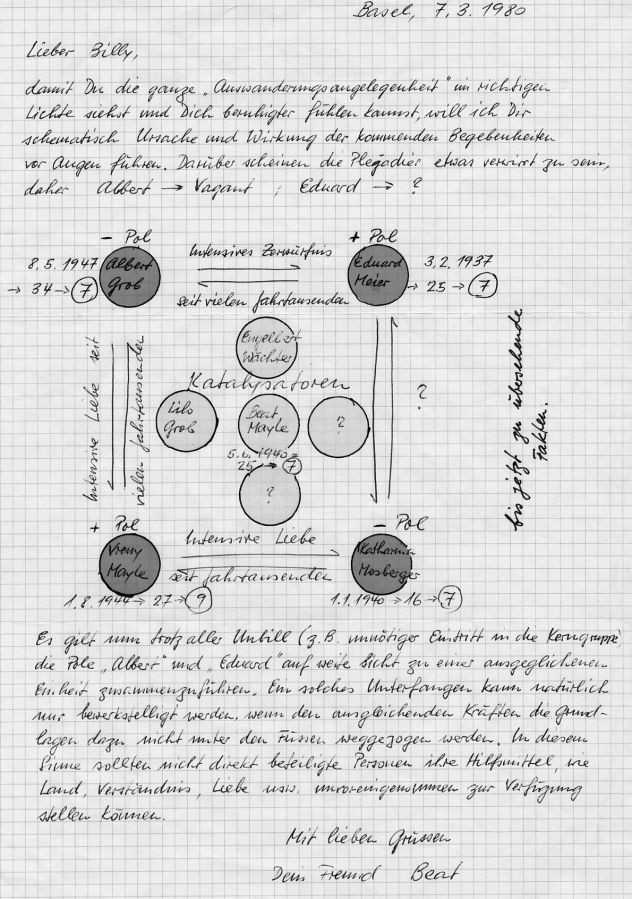 Basel, 7.3.1980
Lieber Billy,
damit Du die ganze „Auswanderungsangelegenheit" im richtigen
Lichte siehst und Dich beruhigter fühlen kannst, will ich Dir
schematisch Ursache und Wirkung der kommenden Begebenheiten
vor Augen führen. Darüber scheinen die Plejadier etwas verwirrt zu sein,
daher Albert → Vagant ; Eduard → ?
– Pol
+ Pol
8.5.1947
Albert
Grob
→ 34 → 7
Intensives Zerwürfnis
seit vielen Jahrtausenden
Eduard
Meier
3.2.1937
→ 25 → 7
Engelbert
Wächter
Katalysatoren
Lilo
Grob
Beat
Mayle
?
5.6.1940 =
25 → 7
?
Intensive Liebe seit
vielen Jahrtausenden
?
bis jetzt zu übersehende
Fakten.
+ Pol
– Pol
Vreny
Mayle
Intensive Liebe
seit Jahrtausenden
Katharina
Mosberger
1.8.1944 → 27 → 9
1.1.1940 → 16 → 7
Es gilt nun trotz aller Unbill (z.B. unnötiger Eintritt in die Kerngruppe)
die Pole „Albert" und „Eduard" auf weite Sicht zu einer ausgeglichenen
Einheit zusammenzuführen. Ein solches Unterfangen kann natürlich
nur bewerkstelligt werden, wenn den ausgleichenden Kräften die Grund-
lagen dazu nicht unter den Füssen weggezogen werden. In diesem
Sinne sollten nicht direkt beteiligte Personen ihre Hilfsmittel, wie
Land, Verständnis, Liebe usw. unvoreingenommen zur Verfügung
stellen können.
Mit lieben Grüssen
Dein Freund Beat